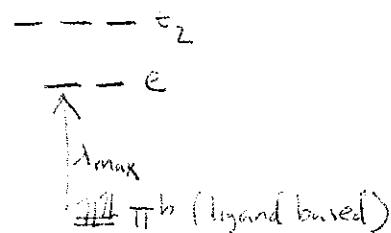 t₂
e
λmax
π^b (ligand based)